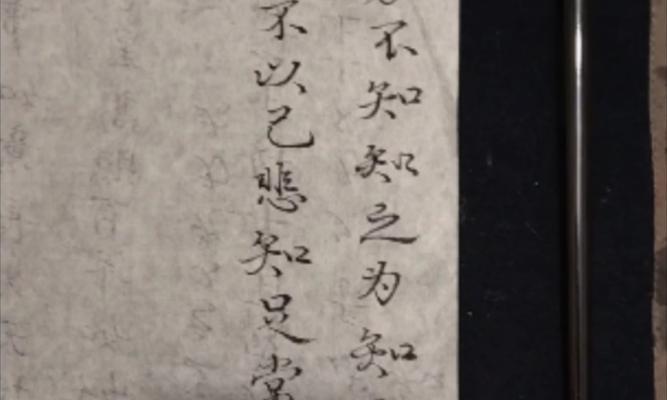 不知知之为知
不以己悲知足常